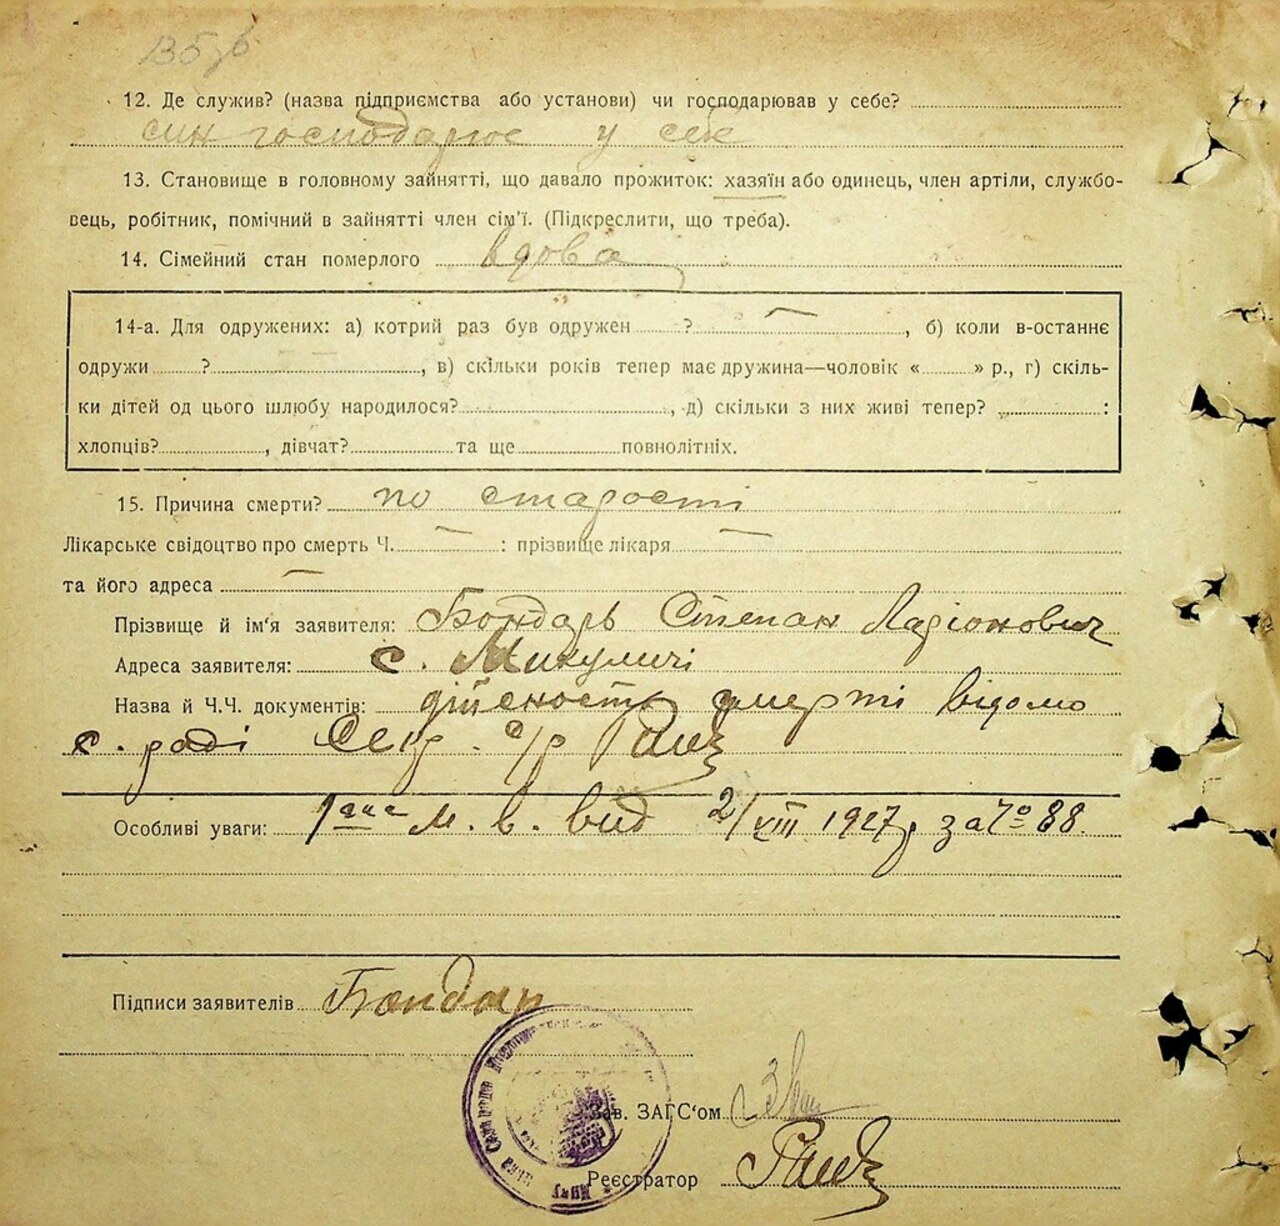 12. Де служив? (назва підприємства або установи) чи господарював у себе?
син господарює у себе
13. Становище в головному зайнятті, що давало прожиток: хазяїн або одинець, член артілі, службо-
вець, робітник, помічний в зайнятті член сім'ї. (Підкреслити, що треба).
14. Сімейний стан померлого вдова
14-а. Для одружених: а) котрий раз був одружен ? , б) коли в-останнє
одружи ? , в) скільки років тепер має дружина—чоловік « » р., г) скіль-
ки дітей од цього шлюбу народилося? , д) скільки з них живі тепер? :
хлопців? , дівчат? та ще повнолітніх.
15. Причина смерти? по старості
Лікарське свідоцтво про смерть Ч. — : прізвище лікаря —
та його адреса —
Прізвище й ім'я заявителя: Бондарь Степан Ларіонович
Адреса заявителя: с. Микуличі
Назва й Ч.Ч. документів: дійсность смерті відомо
с. раді Секр. с/р
Особливі уваги: м. в. вид 2/VIII 1927р за № 88.
Підписи заявителів Бондар
Зав. ЗАГС'ом
Реєстратор